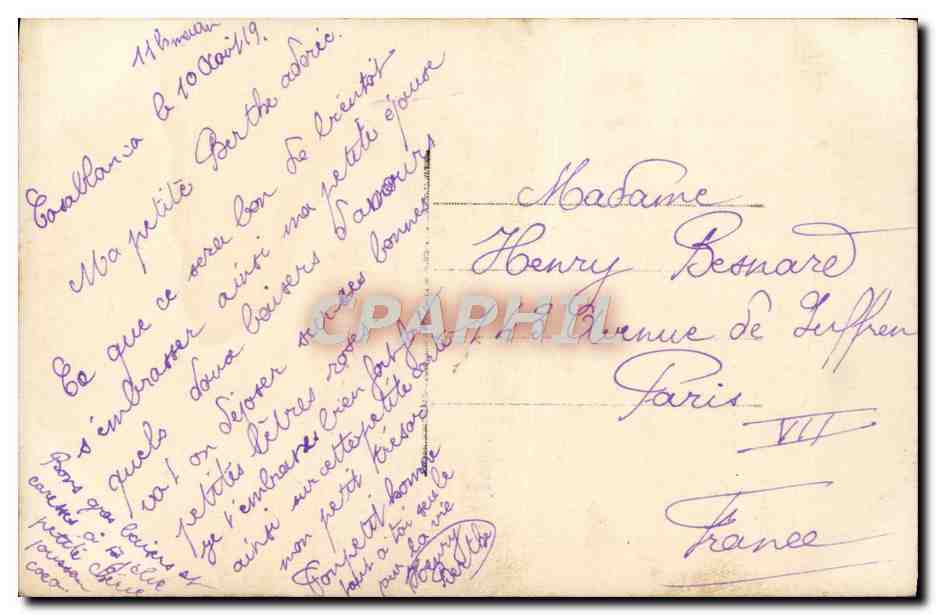 11h
Casablanca le 10 Août 19.
Ma petite Berthe adorée.
Ce que ce sera bon de bientôt
s'embrasser ainsi ma petite épouse
quels doux baisers d'amours
va t on déposer sur ces bonnes
petites lèbres roses
je t'embrasse bien fort
ainsi sur cette petite
mon petit trésor
Ton petit homme
tout a toi seule
pur la vie
Henry
Berthe
Bons gros baisers et
caresses à toi
petite chérie
coco.
Madame
Henry Besnard
Avenue de Suffren
Paris
VII
France
CPAPHIL